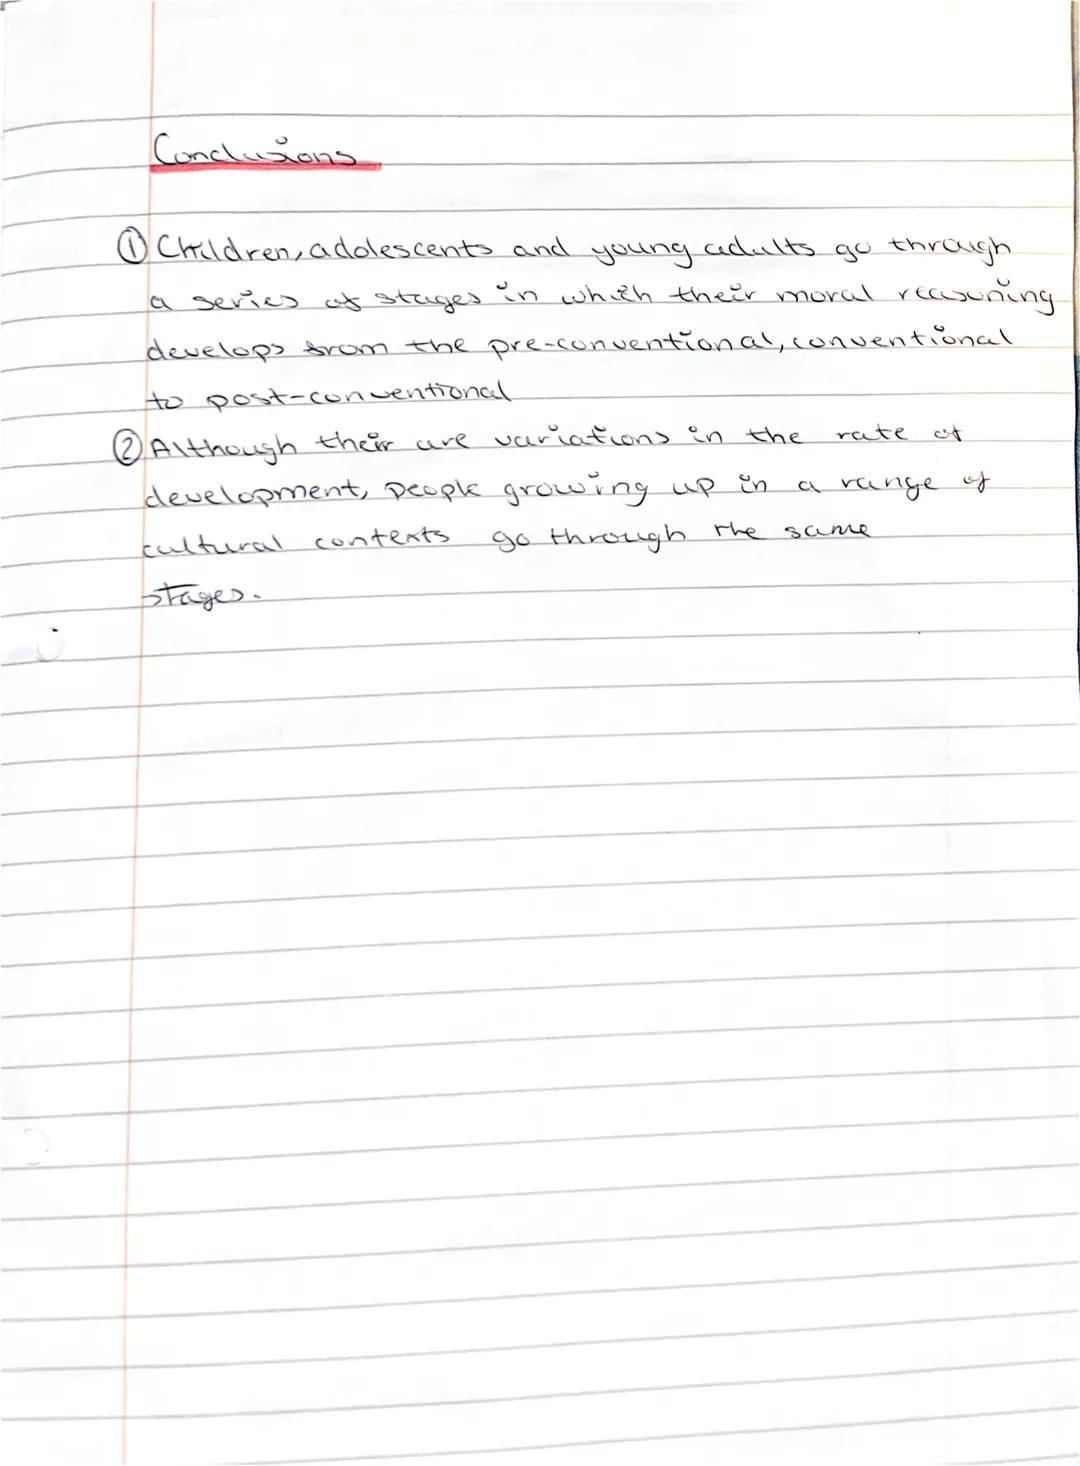 Conclusions
① Children, adolescents and young adults go through
a series of stages in which their moral reasoning
develops from the pre-conventional, conventional
to post-conventional
② Although their are variations in the rate of
development, people growing up in a range of
cultural contexts go through the same
stages.